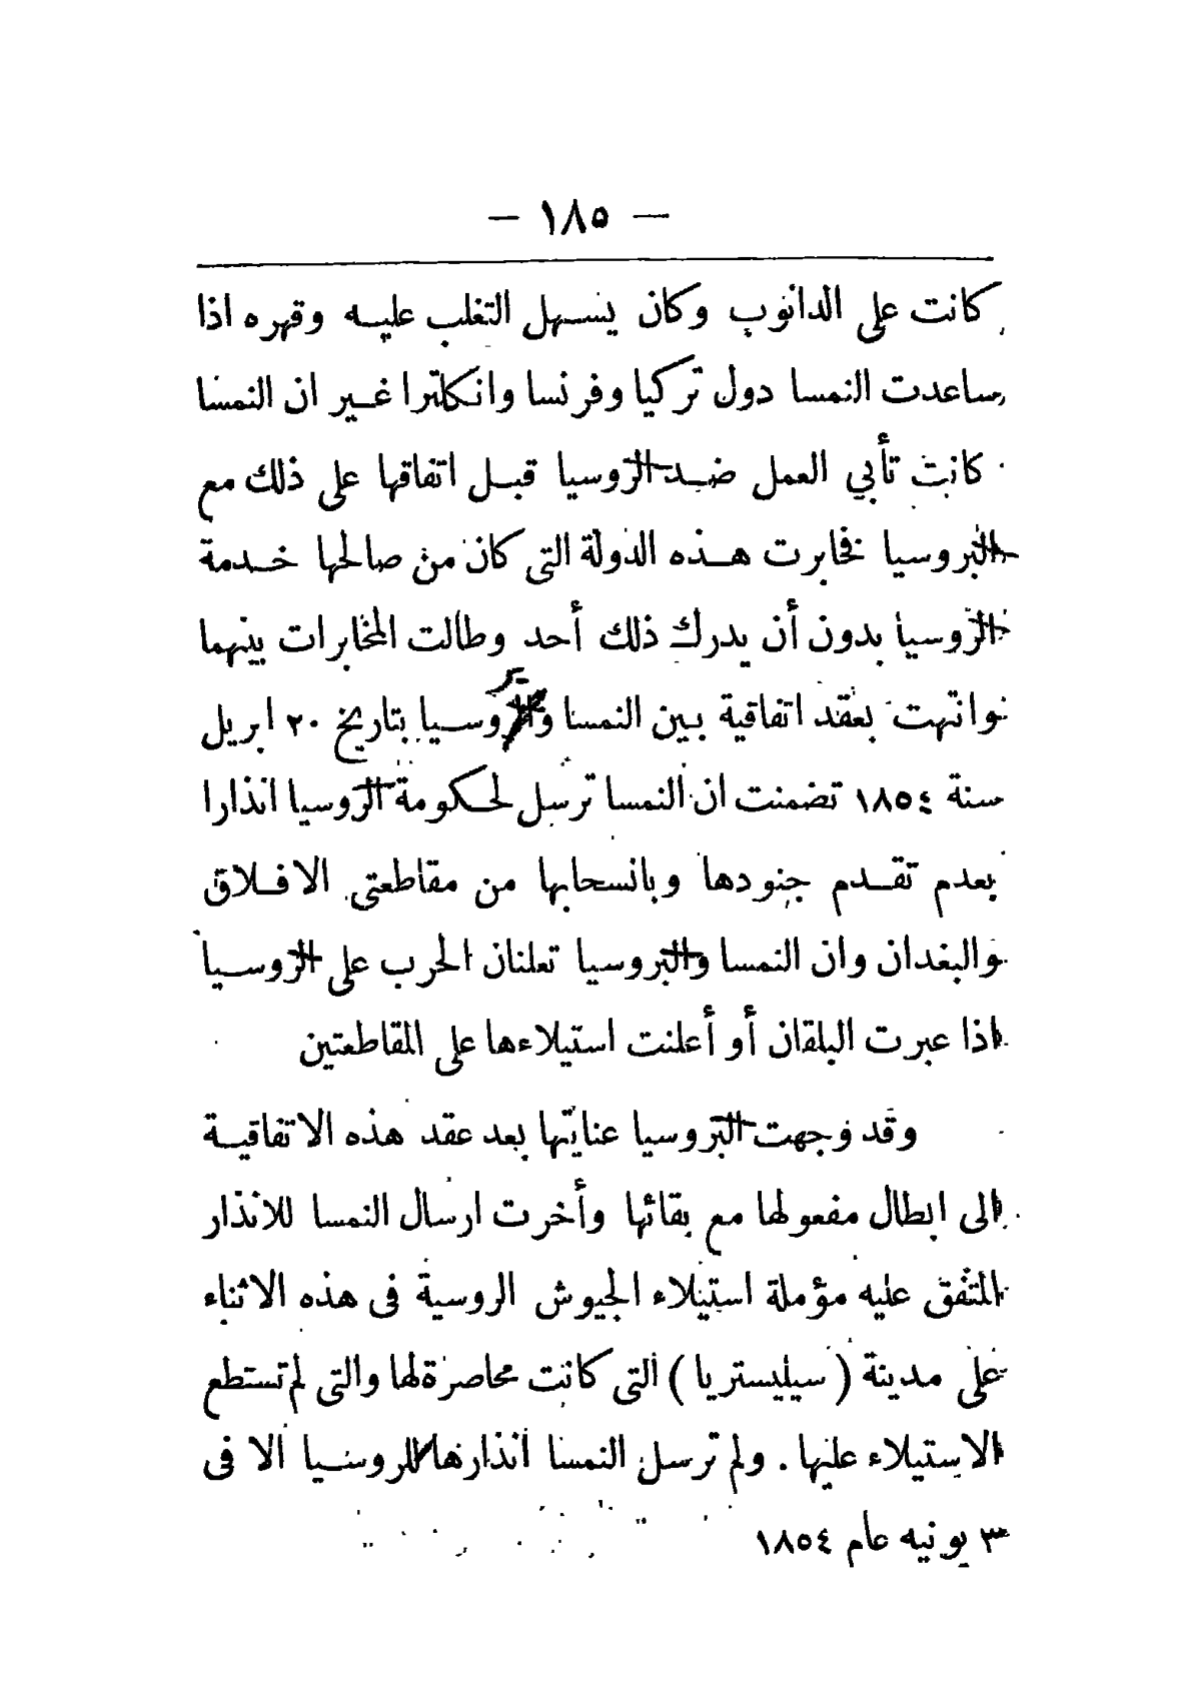 — ١٨٥ —
كانت على الدانوب وكان يسهل التغلب عليه وقهره اذا
ساعدت النمسا دول تركيا وفرنسا وانكلترا غير ان النمسا
كانت تأبي العمل ضد الروسيا قبل اتفاقها على ذلك مع
البروسيا فخابرت هذه الدولة التى كان من صالحها خدمة
الروسيا بدون أن يدرك ذلك أحد وطالت المخابرات بينهما
وانتهت بعقد اتفاقية بين النمسا والروسيا بتاريخ ٢٠ ابريل
سنة ١٨٥٤ تضمنت ان النمسا ترسل لحكومة الروسيا انذارا
بعدم تقدم جنودها وبانسحابها من مقاطعتى الافلاق
والبغدان وان النمسا والبروسيا تعلنان الحرب على الروسيا
اذا عبرت البلقان أو أعلنت استيلاءها على المقاطعتين
وقد وجهت البروسيا عنايتها بعد عقد هذه الاتفاقية
الى ابطال مفعولها مع بقائها وأخرت ارسال النمسا للانذار
المتفق عليه مؤملة استيلاء الجيوش الروسية فى هذه الاثناء
على مدينة ( سيليستريا ) التى كانت محاصرة لها والتى لم تستطع
الاستيلاء عليها . ولم ترسل النمسا انذارها للروسيا الا فى
٣ يونيه عام ١٨٥٤